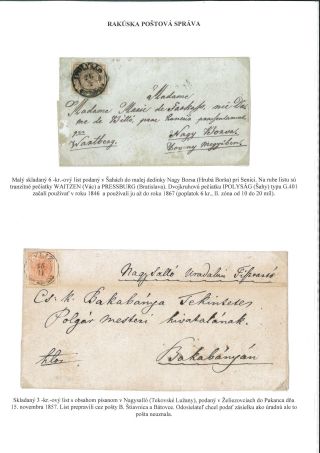 RAKÚSKA POŠTOVÁ SPRÁVA
IPOLYSÁG
Madame
Madame Marie de
de Wittó,
Nagy Borsa
Waitberg.
Malý skladaný 6 -kr.-ový list podaný v Šahách do malej dedinky Nagy Borsa (Hrubá Borša) pri Senici. Na rube listu sú
tranzitné pečiatky WAITZEN (Vác) a PRESSBURG (Bratislava). Dvojkruhovú pečiatku IPOLYSÁG (Šahy) typu G.401
začali používať v roku 1846 a používali ju až do roku 1867 (poplatok 6 kr., II. zóna od 10 do 20 míl).
Nagysalló Uradalmi
Cs. k. Bakabánya Tekintetes
Polgár mesteri hivatalának.
Bakabányán
Skladaný 3 -kr.-ový list s obsahom písanom v Nagysalló (Tekovské Lužany), podaný v Želiezovciach do Pukanca dňa
15. novembra 1857. List prepravili cez pošty B. Štiavnica a Bátovce. Odosielateľ chcel podať zásielku ako úradnú ale to
pošta neuznala.